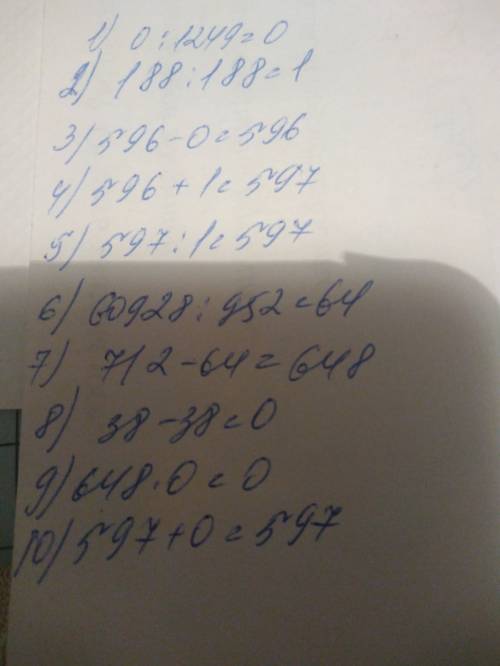 1) 0:1249=0
2) 188:188=1
3) 596-0=596
4) 596+1=597
5) 597:1=597
6) 60928:952=64
7) 712-64=648
8) 38-38=0
9) 648·0=0
10) 597+0=597